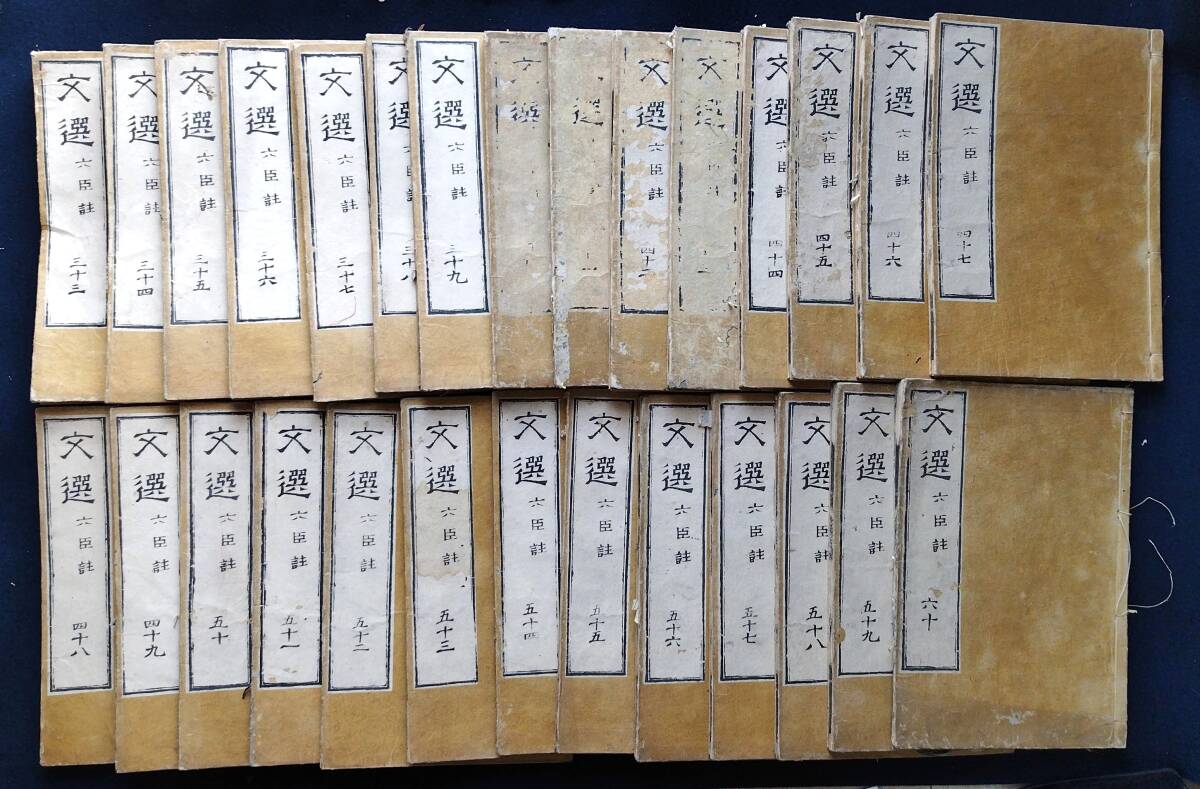 文選 六臣註 三十三
文選 六臣註 三十四
文選 六臣註 三十五
文選 六臣註 三十六
文選 六臣註 三十七
文選 六臣註 三十八
文選 六臣註 三十九
文選
選
文選 六臣註 四十二
文選
文選 六臣註 四十四
文選 六臣註 四十五
文選 六臣註 四十六
文選 六臣註 四十七
文選 六臣註 四十八
文選 六臣註 四十九
文選 六臣註 五十
文選 六臣註 五十一
文選 六臣註 五十二
文選 六臣註 五十三
文選 六臣註 五十四
文選 六臣註 五十五
文選 六臣註 五十六
文選 六臣註 五十七
文選 六臣註 五十八
文選 六臣註 五十九
文選 六臣註 六十